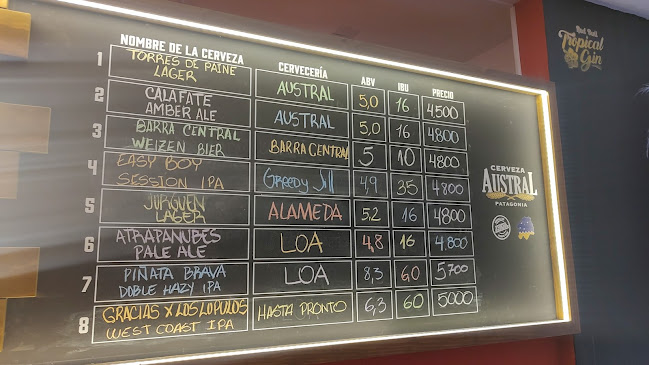 NOMBRE DE LA CERVEZA CERVECERÍA ABV IBU PRECIO
1 TORRES DE PAINE
LAGER AUSTRAL 5,0 16 4500
2 CALAFATE
AMBER ALE AUSTRAL 5,0 16 4800
3 BARRA CENTRAL
WEIZEN BIER BARRA CENTRAL 5 10 4800
4 EASY BOY
SESSION IPA GREEDY JILL 4,9 35 4800
5 JÜRGUEN
LAGER ALAMEDA 5.2 16 4800
6 ATRAPANUBES
PALE ALE LOA 4,8 16 4.800
7 PIÑATA BRAVA
DOBLE HAZY IPA LOA 8,3 60 5700
8 GRACIAS X LOS LÚPULOS
WEST COAST IPA HASTA PRONTO 6,3 60 5000
CERVEZA
AUSTRAL
PATAGONIA
Tropical
Gin